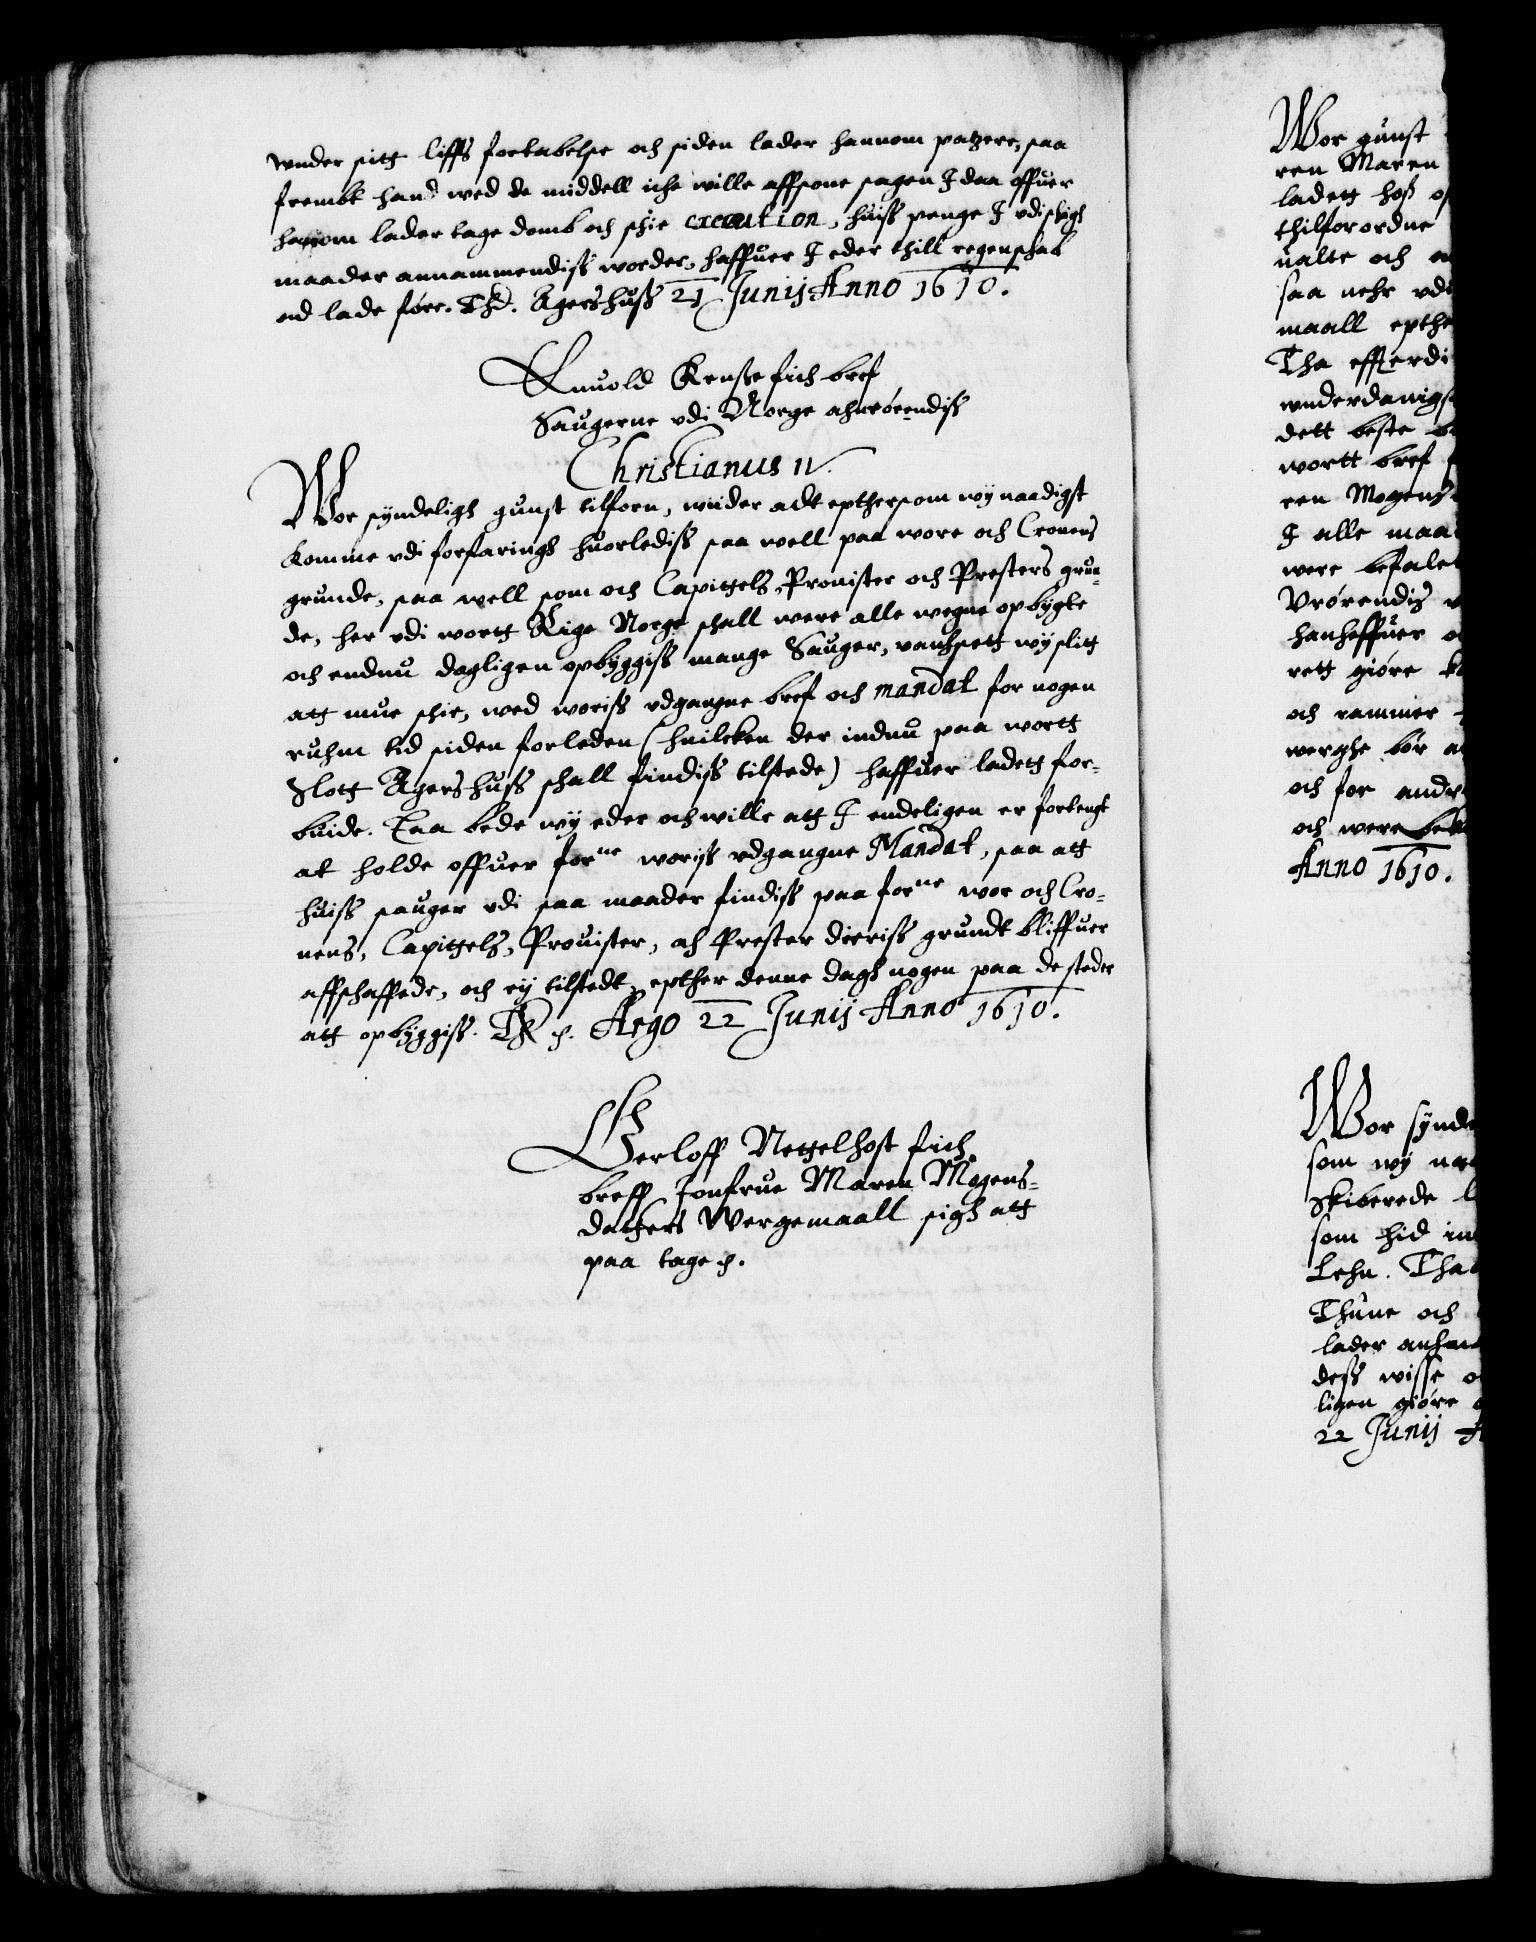 wnder sitt liffs fortabelse och siden lader hannom patzere, saa
frembt hand wed de middell iche wille affsone sagen I daa offuer
hannom lader tage domb och schie execution, huiss penge I vdi slig
maader annammendiss worder, haffuer I eder thill regenschab
ad lade føre. Agershuss 21 Junij Anno 1610.
Enuold Kruse fich bref
Saugerne vdi Norge ahnrørendiss
Christianus IV.
Wor synderlig gunst tilforn, wider adt epthersom wy naadigst
komme vdi forfaringh huorlediss saa well paa wore och Cronens
grunde, saa well som och Capittels, Prouister och Presters grun-
de, her vdi wortt Rige Norge schall were alle wegne opbygte
och endnu dagligen opbyggiss mange Sauger, vanhsett wy slitt
att mue schie, wed woriss vdgangne bref och mandat for nogen
ruhm tid siden forleden (huilcken der indnu paa wortt
Slott Agershuss schall findiss tilstede) haffuer ladett for-
buide. Taa bede wy eder och wille att I endeligen er fortengt
at holde offuer forne woriss vdgangne Mandat, saa att
huiss sauger vdi saa maader findiss paa forne wor och Cro-
nens, Capittels, Prouister, och Prester dieriss grundt bliffuer
affschaffede, och ey tilstedt, epther denne dagh nogen paa de steder
att opbyggiss. Argo 22 Junij Anno 1610.
Gerloff Nettelhost fich
breff Jonfrue Maren Mogens-
datters Wergemaall sigh att
paa tage
Wor gunst
ren Maren
ladett hoss
thilforordne
ualte och
saa nehr
maall epthe
Tha effterdi
wnderdanigs
dett beste
wortt bref
ren Mogens
I alle maa
were befalet
Vrørendis
hanheffuer
rett giøre
och rammer
werghe bør
och for andr
och were
Anno 1610.
Wor synde
som wy naa
Skiberede
som hid in
Lehn. Tha
Thune och
lader anham
dess wisse
ligen giøre
22 Junij